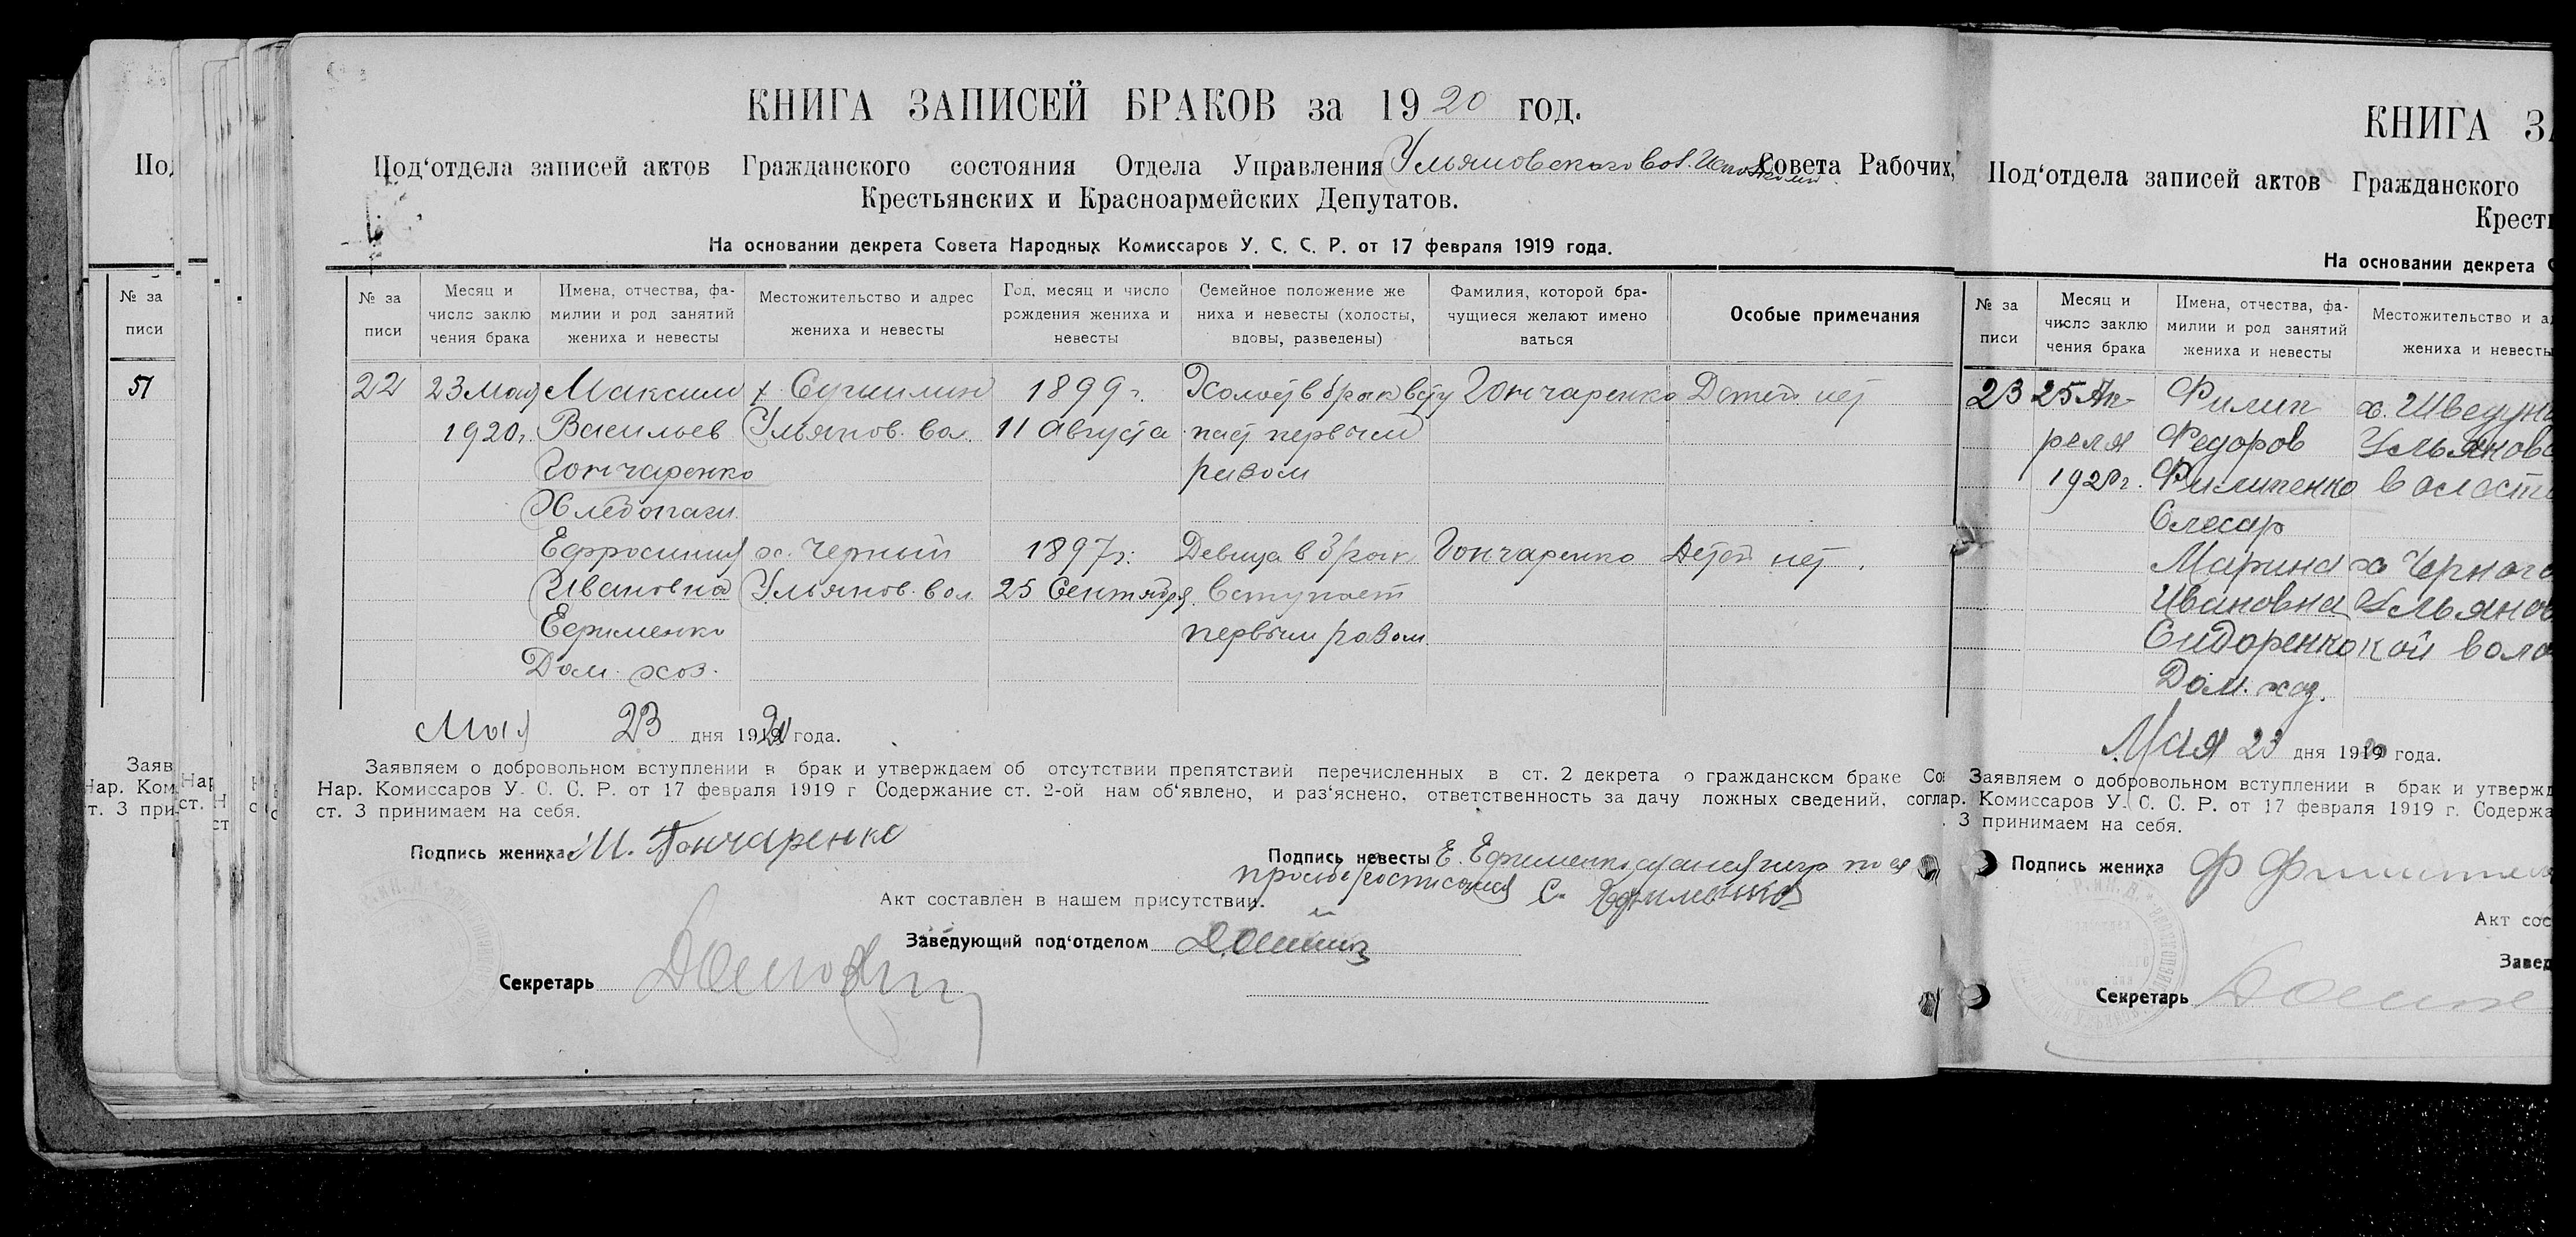 КНИГА ЗАПИСЕЙ БРАКОВ за 1920 год.
Под'отдела записей актов Гражданского состояния Отдела Управления Ульяновского вол. Совета Рабочих,
Крестьянских и Красноармейских Депутатов.
На основании декрета Совета Народных Комиссаров У. С. С. Р. от 17 февраля 1919 года.
№ за писи
Месяц и число заклю чения брака
Имена, отчества, фамилии и род занятий жениха и невесты
Местожительство и адрес жениха и невесты
Год, месяц и число рождения жениха и невесты
Семейное положение же ниха и невесты (холосты, вдовы, разведены)
Фамилия, которой брачущиеся желают имено ваться
Особые примечания
22 23 мая Максим х. 1899 г. Холост в брак всту Гончаренко Детей нет
1920 г. Васильев Ульянов. вол. 11 Августа пает первым
Гончаренко разом
Хлебопаш.
Ефросиния х. Черный 1897 г. Девица в брак Гончаренко Детей нет.
Ивановна Ульянов. вол. 25 Сентября вступает
Ефименко первым разом
Дом. хоз.
Мая 23 дня 1920 года.
Заявляем о добровольном вступлении в брак и утверждаем об отсутствии препятствий перечисленных в ст. 2 декрета о гражданском браке Сов
Нар. Комиссаров У. С. С. Р. от 17 февраля 1919 г Содержание ст. 2-ой нам об'явлено, и раз'яснено, ответственность за дачу ложных сведений, соглас
ст. 3 принимаем на себя.
Подпись жениха М. Гончаренко
Подпись невесты Е. Ефименко
просьбе расписался С. Ефименко
Акт составлен в нашем присутствии.
Заведующий под'отделом
Секретарь
КНИГА ЗА
Под'отдела записей актов Гражданского
Крест
На основании декрета С
№ за писи
Месяц и число заклю чения брака
Имена, отчества, фамилии и род занятий жениха и невесты
Местожительство и ад
жениха и невесты
23 25 Ап- Филип х.
реля Федоров Ульяновс
1920 г. Филипенко волости
Слесар
Марина х Черного
Ивановна Ульянов
Сидоренко кой воло
Дом. хоз.
Мая 23 дня 1920 года.
Заявляем о добровольном вступлении в брак и утвержд
р. Комиссаров У. С. С. Р. от 17 февраля 1919 г. Содержа
. 3 принимаем на себя.
Подпись жениха Ф
Акт сос
Завед
Секретарь
Под
№ за
писи
51
Заяв
Нар. Ком
ст. 3 при